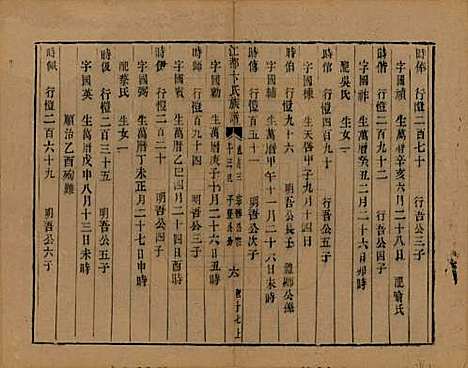 時俸 行愷二百七十 行吾公三子
字國禎 生萬曆辛亥六月二十八日 配喻氏
時倌 行愷二百九十二 行吾公四子
字國祚 生萬曆癸丑二月二十六日卯時
配吳氏 生女一
字國棟 生天啓甲子九月十四日
時伯 行愷九十六 明吾公長子
字國輔 生萬曆甲午十一月二十六日未時
時傳 行愷百五十一 明吾公次子
江都卞氏族譜
六
字國勳 生萬曆庚子十月二十六日丑時
時師 行愷百九十四 明吾公三子
字國賓 生萬曆乙巳四月二十四日酉時
時伊 行愷二百二十 明吾公四子
字國 生萬曆丁未正月二十七日申時
配蔡氏 生女一
時佩 行愷二百三十五 明吾公五子
字國英 生萬曆戊申八月十三日未時
順治乙酉殉難
時佩 行愷二百六十九 明吾公六子